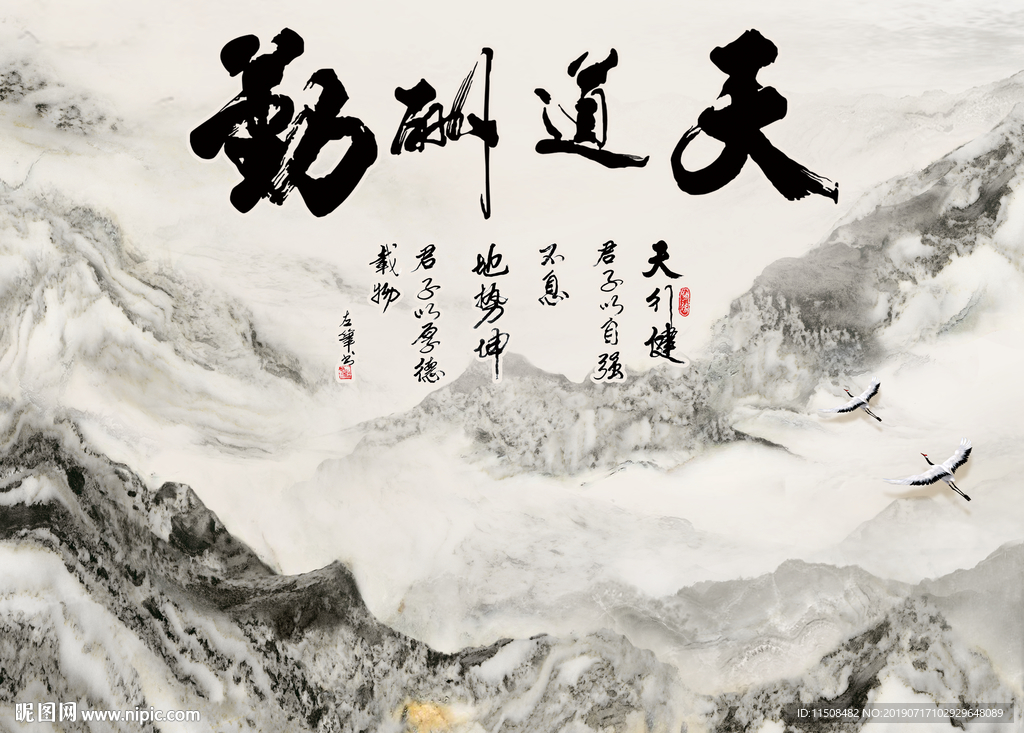 天道酬勤
天行健
君子以自强
不息
地势坤
君子以厚德
载物
左笔书
昵图网 www.nipic.com
ID:11508482 NO:20190717102929648089